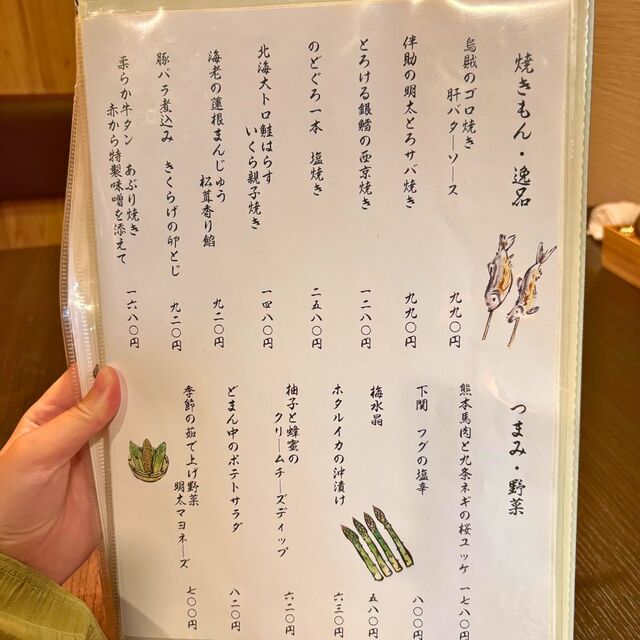 焼きもん・逸品
烏賊のゴロ焼き
肝バターソース
九九〇円
伴助の明太とろサバ焼き
九九〇円
とろける銀鱈の西京焼き
一二八〇円
のどぐろ一本 塩焼き
二五八〇円
北海大トロ鮭はらす
いくら親子焼き
一四八〇円
海老の蓮根まんじゅう
松茸香り餡
九二〇円
豚バラ煮込み きくらげの卯とじ
九二〇円
柔らか牛タン あぶり焼き
赤から特製味噌を添えて
一六八〇円
つまみ・野菜
熊本馬肉と九条ネギの桜ユッケ
一七八〇円
下関 フグの塩辛
八〇〇円
梅水晶
五八〇円
ホタルイカの沖漬け
六三〇円
柚子と蜂蜜の
クリームチーズディップ
六二〇円
どまん中のポテトサラダ
八二〇円
季節の茹で上げ野菜
明太マヨネーズ
七〇〇円